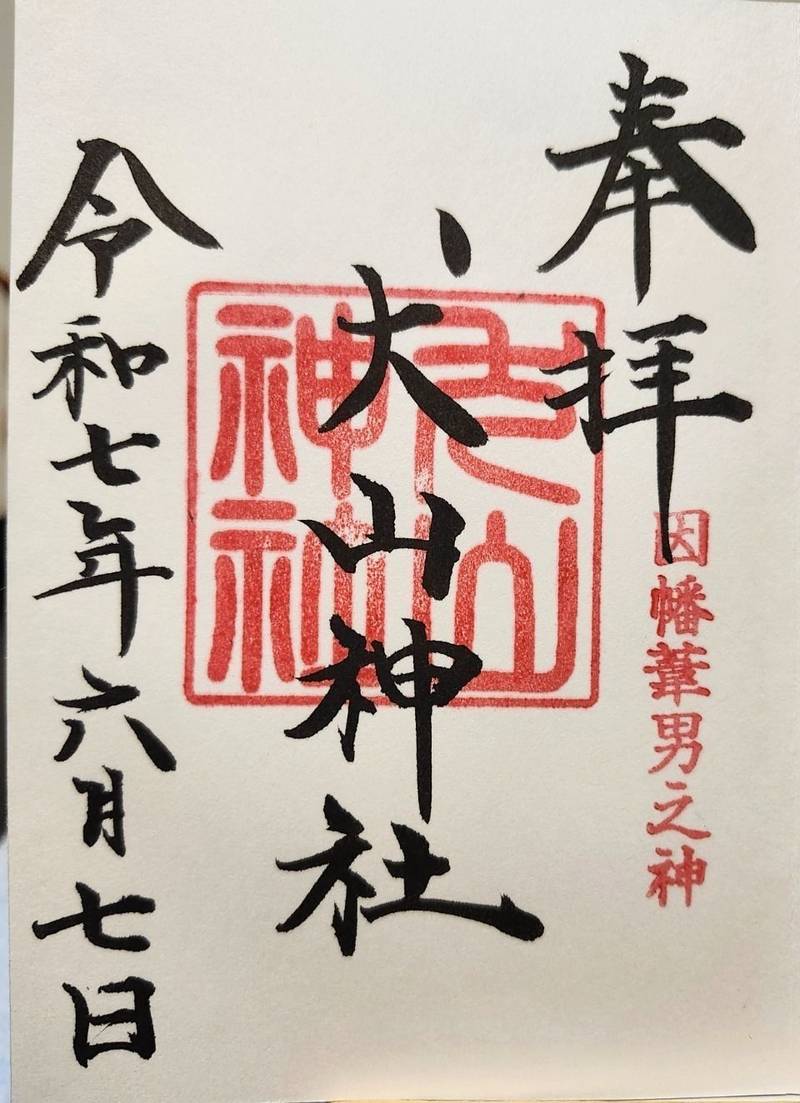 奉拝
因幡葦男之神
犬山神社
犬山神社
令和七年六月七日